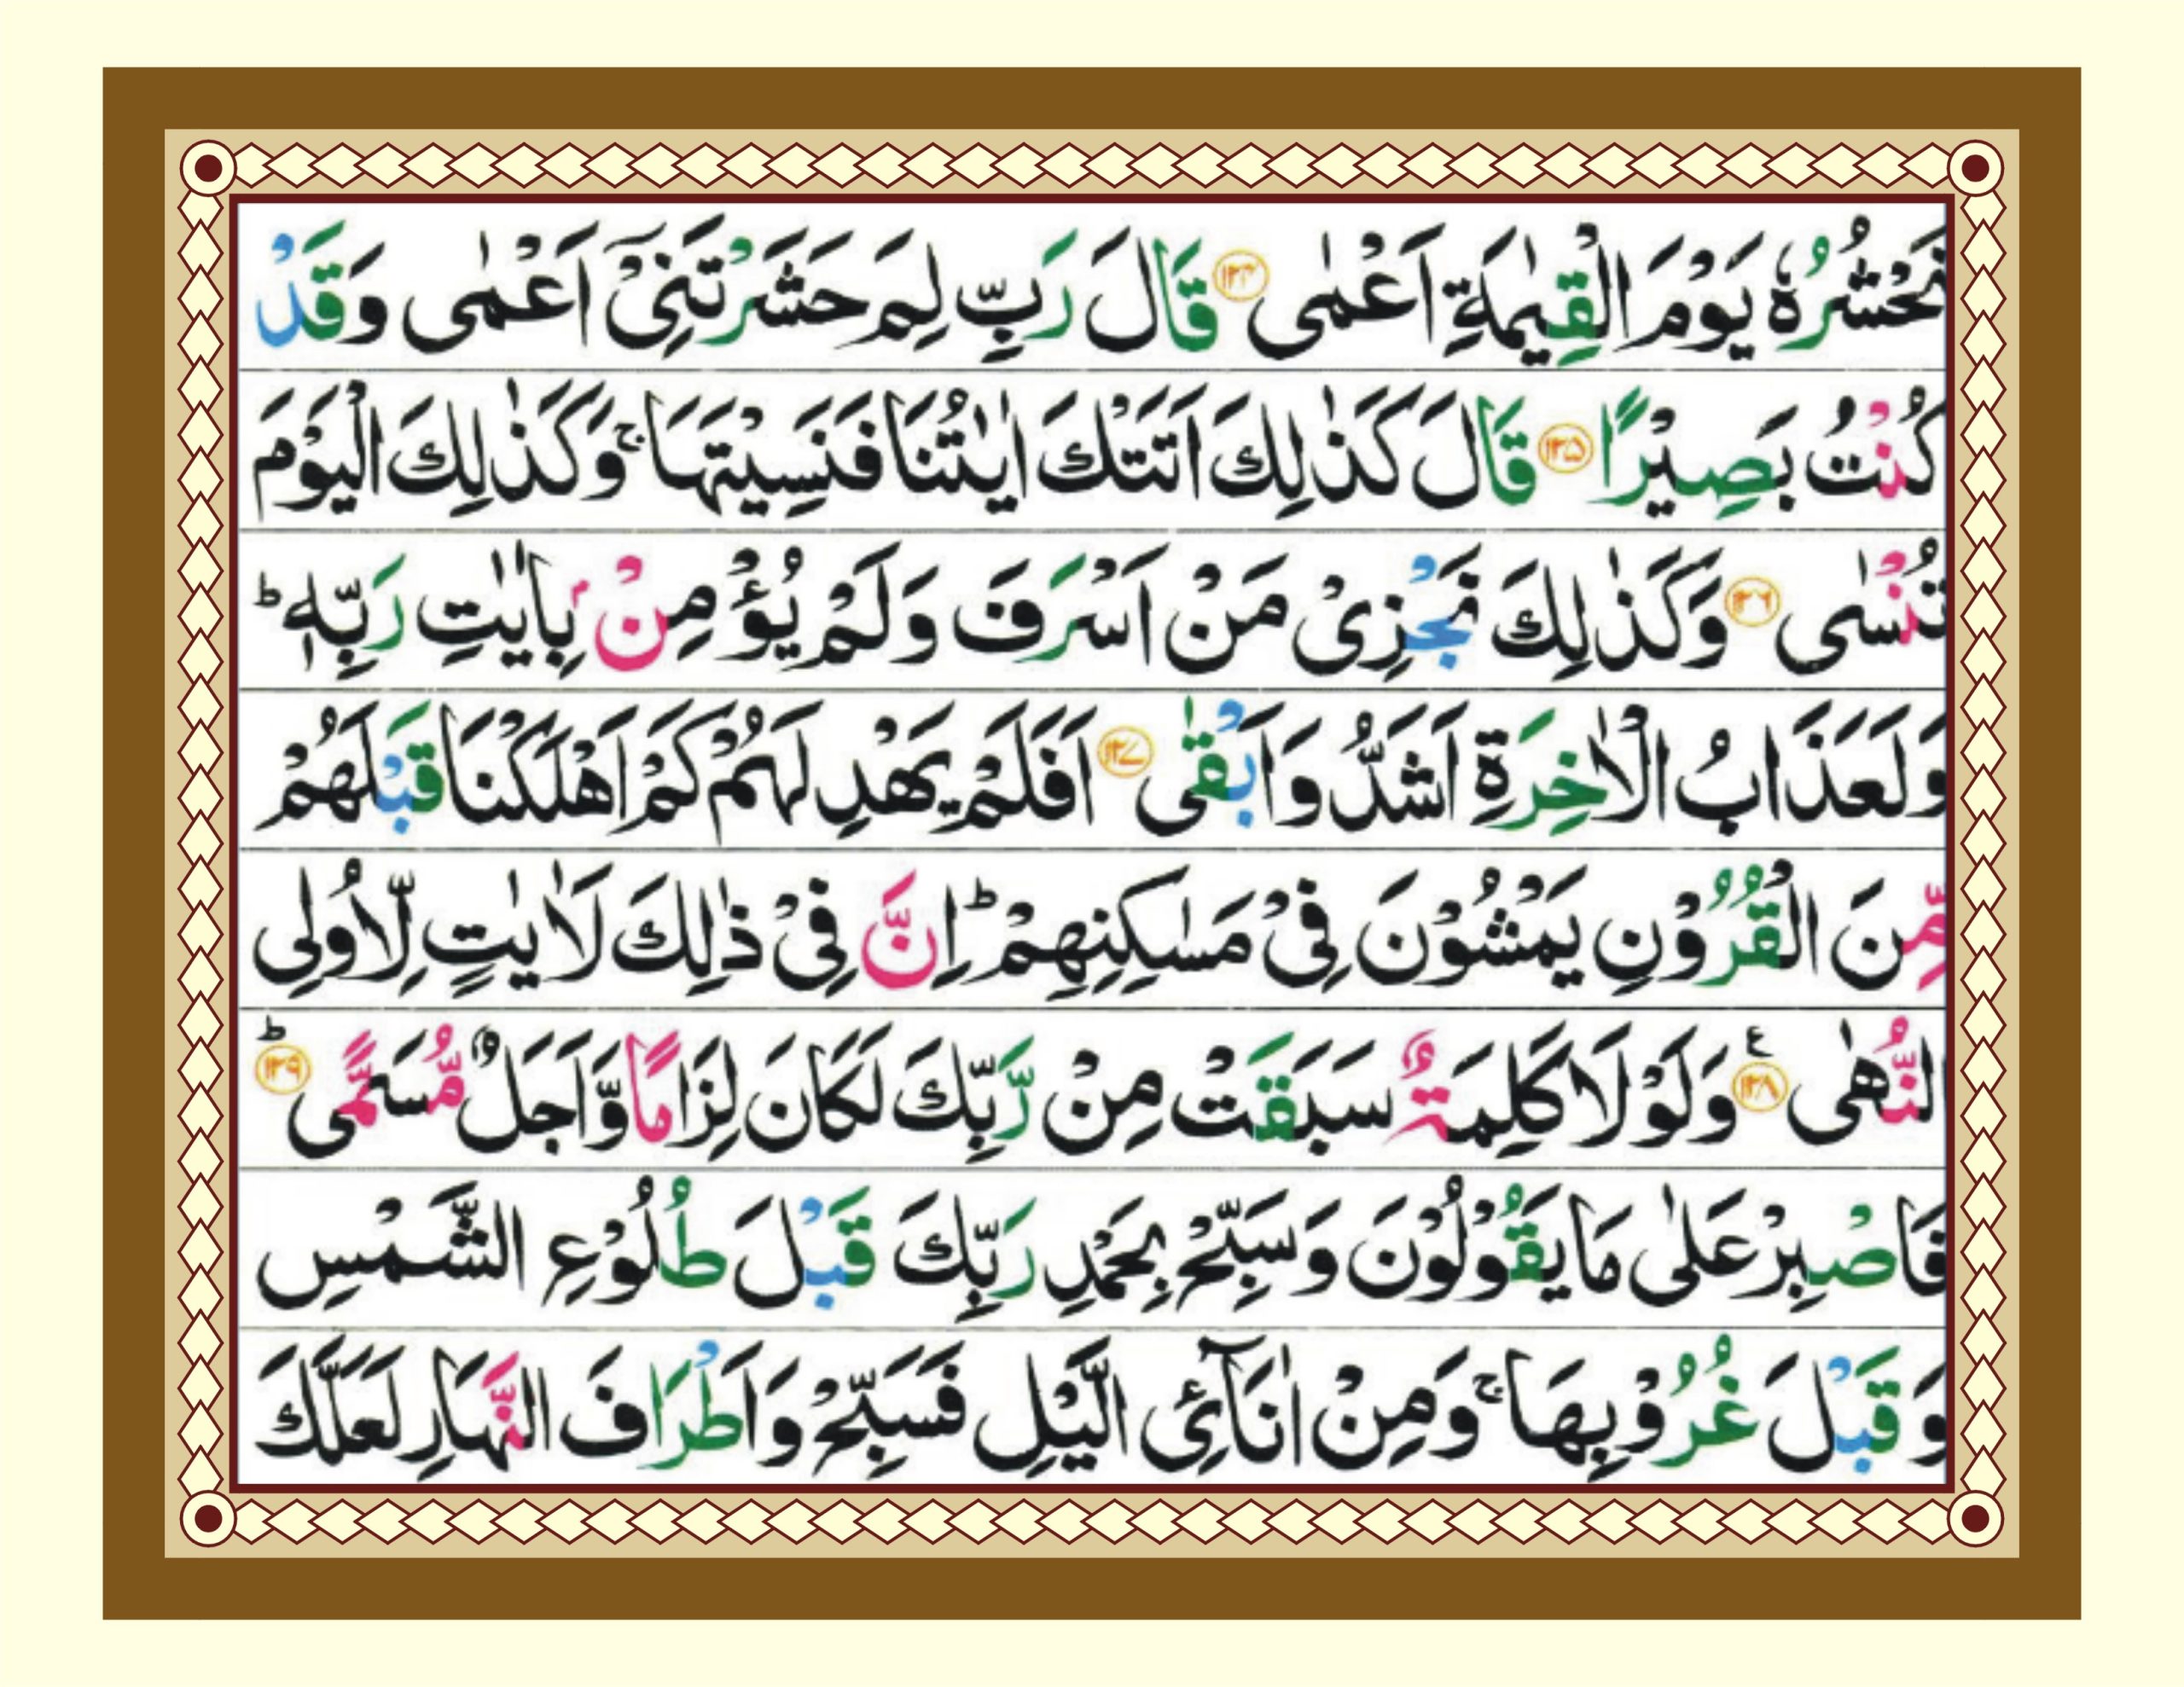 نَحْشُرُهٗ يَوْمَ الْقِيٰمَةِ اَعْمٰى ﴿۱۲۴﴾ قَالَ رَبِّ لِمَ حَشَرْتَنِيْۤ اَعْمٰى وَقَدْ
كُنْتُ بَصِيْرًا ﴿۱۲۵﴾ قَالَ كَذٰلِكَ اَتَتْكَ اٰيٰتُنَا فَنَسِيْتَهَا ۚ وَكَذٰلِكَ الْيَوْمَ
تُنْسٰى ﴿۱۲۶﴾ وَكَذٰلِكَ نَجْزِيْ مَنْ اَسْرَفَ وَلَمْ يُؤْمِنْۢ بِاٰيٰتِ رَبِّهٖ ؕ
وَلَعَذَابُ الْاٰخِرَةِ اَشَدُّ وَاَبْقٰى ﴿۱۲۷﴾ اَفَلَمْ يَهْدِ لَهُمْ كَمْ اَهْلَكْنَا قَبْلَهُمْ
مِّنَ الْقُرُوْنِ يَمْشُوْنَ فِيْ مَسٰكِنِهِمْ ؕ اِنَّ فِيْ ذٰلِكَ لَاٰيٰتٍ لِّاُولِى
النُّهٰى ﴿۱۲۸﴾ ع وَلَوْ لَا كَلِمَةٌ سَبَقَتْ مِنْ رَّبِّكَ لَكَانَ لِزَامًا وَّاَجَلٌ مُّسَمًّى ﴿۱۲۹﴾ ؕ
فَاصْبِرْ عَلٰى مَا يَقُوْلُوْنَ وَسَبِّحْ بِحَمْدِ رَبِّكَ قَبْلَ طُلُوْعِ الشَّمْسِ
وَقَبْلَ غُرُوْبِهَا ۚ وَمِنْ اٰنَآئِ الَّيْلِ فَسَبِّحْ وَاَطْرَافَ النَّهَارِ لَعَلَّكَ